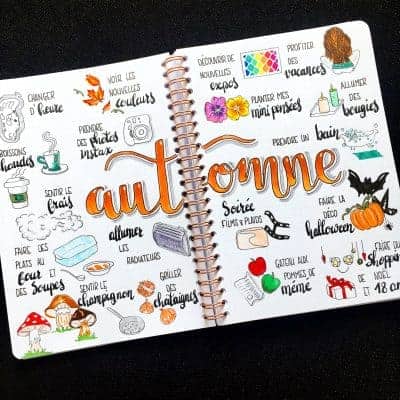 CHANGER
d'heure
VOIR LES
NOUVELLES
couleurs
BOISSONS
chaudes
PRENDRE
DES photos
instax
SENTIR LE
frais
FAIRE DES
PLATS AU
four ET
DES Soupes
allumer
LES
RADIATEURS
SENTIR LE
champignon
GRILLER
DES
châtaignes
automne
DÉCOUVRIR DE
NOUVELLES
expos
PROFITER
DES
vacances
PLANTER MES
mini pensées
ALLUMER
DES
bougies
PRENDRE UN bain
Soirée
FILMS & PLAIDS
FAIRE LA
DÉCO
halloween
GATEAU AUX
POMMES DE
mémé
FAIRE DU
shopping
DE NOËL
ET 18 an